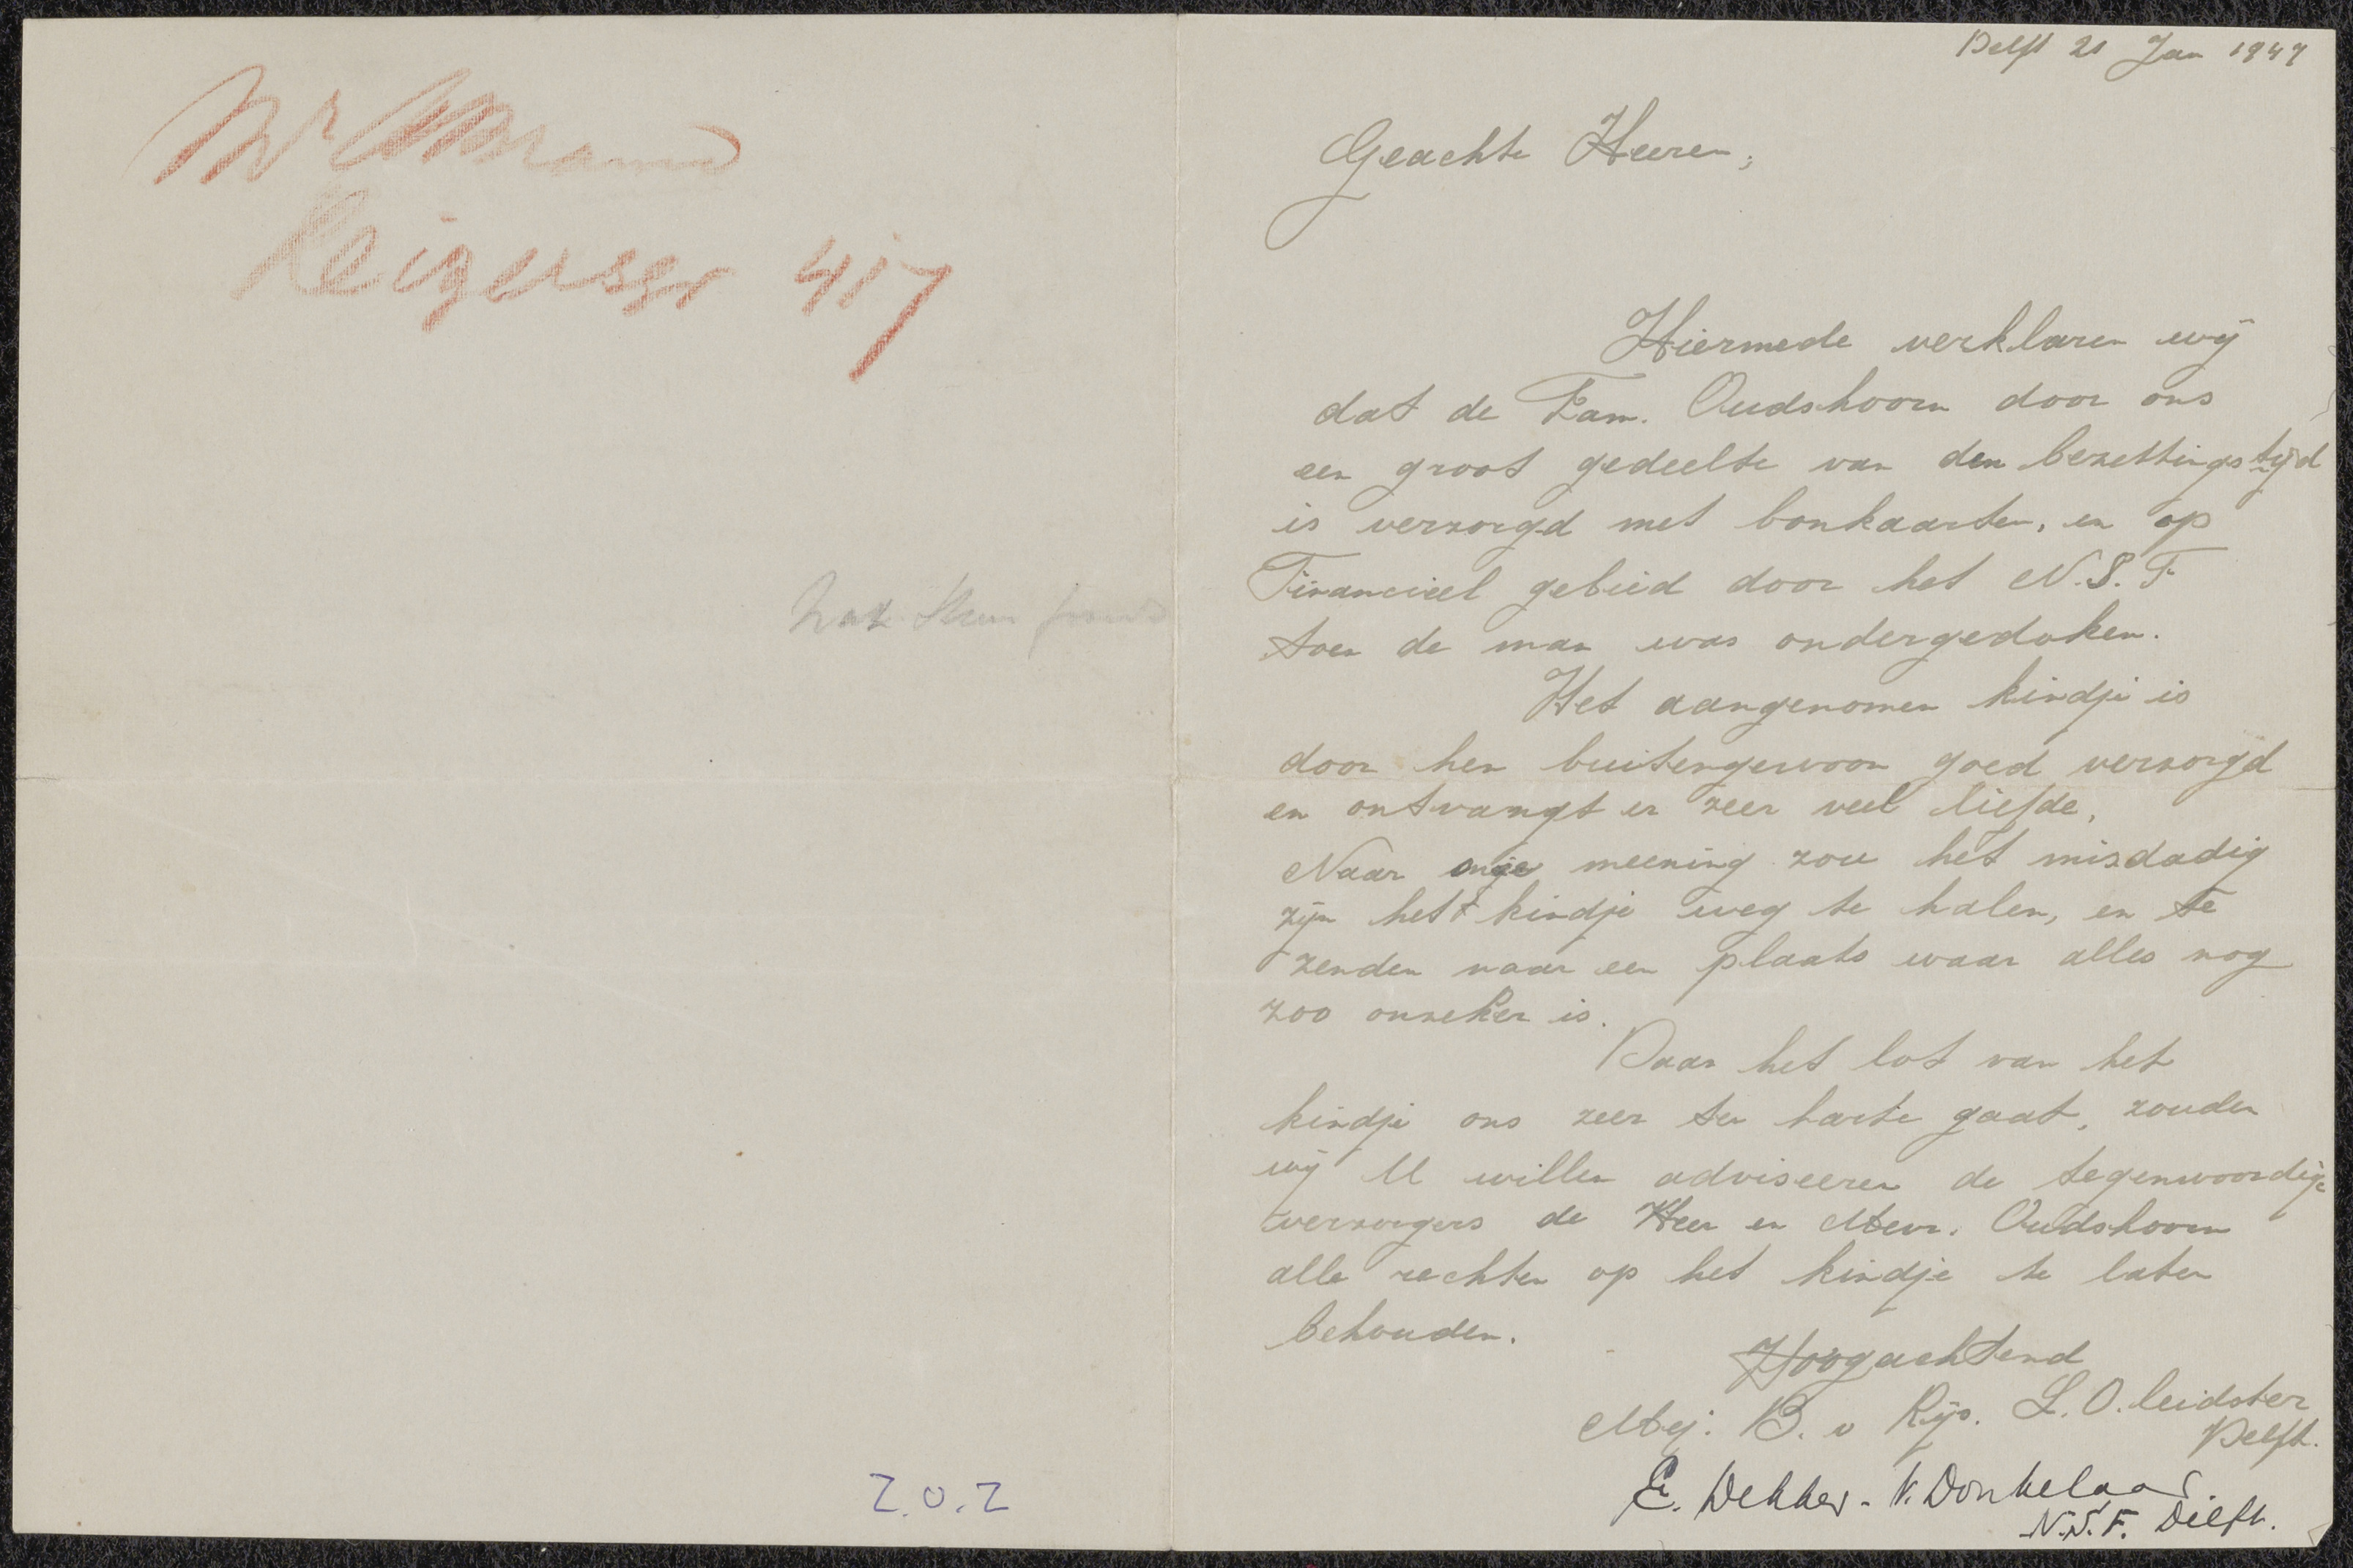 Mr
Keizersgr 417
Nat. Steun fonds
Z.O.Z
Delft 21 Jan 1947
Geachte Heeren,
Hiermede verklaren wij
dat de Fam. Oudshoorn door ons
een groot gedeelte van den bezettingstijd
is verzorgd met bonkaarten, en op
Financieel gebied door het N.S.F
toen de man was ondergedoken.
Het aangenomen kindje is
door hen buitengewoon goed verzorgd
en ontvangt er zeer veel liefde,
Naar onze meening zou het misdadig
zijn het kindje weg te halen, en te
zenden naar een plaats waar alles nog
zoo onzeker is.
Daar het lot van het
kindje ons zeer ter harte gaat, zouden
wij U willen adviseeren de tegenwoordige
verzorgers de Heer en Mevr. Oudshoorn
alle rechten op het kindje te laten
behouden.
Hoogachtend
Mej: B. v Rijs. L.O. leidster
Delft.
E. Dekker-v. Donkelaar
N.S.F. Delft.